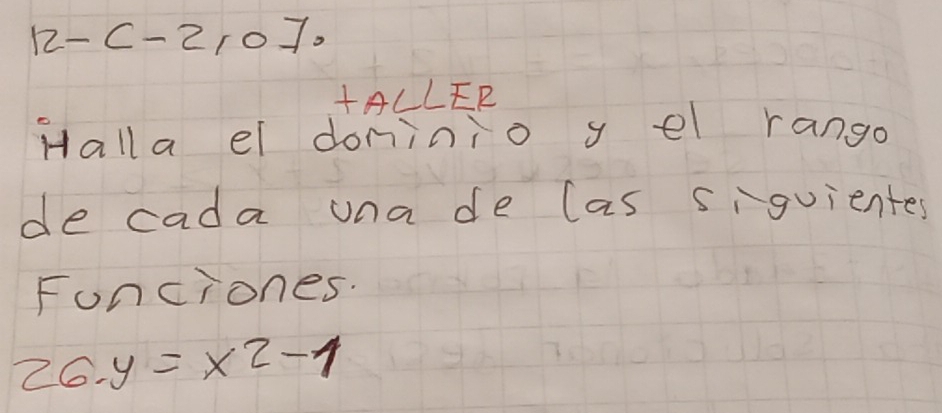 R-C-2,0].
tALLER
Halla el dominio y el rango
de cada una de las siguientes
Funciones.
26.y = x2-1